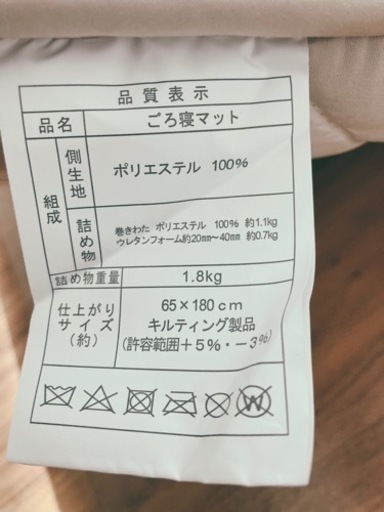 品質表示
品名 ごろ寝マット
組成 側生地 ポリエステル 100%
詰め物 巻きわた ポリエステル 100% 約1.1kg
ウレタンフォーム約20mm〜40mm 約0.7kg
詰め物重量 1.8kg
仕上がりサイズ(約) 65×180cm
キルティング製品
(許容範囲+5%・-3%)
W